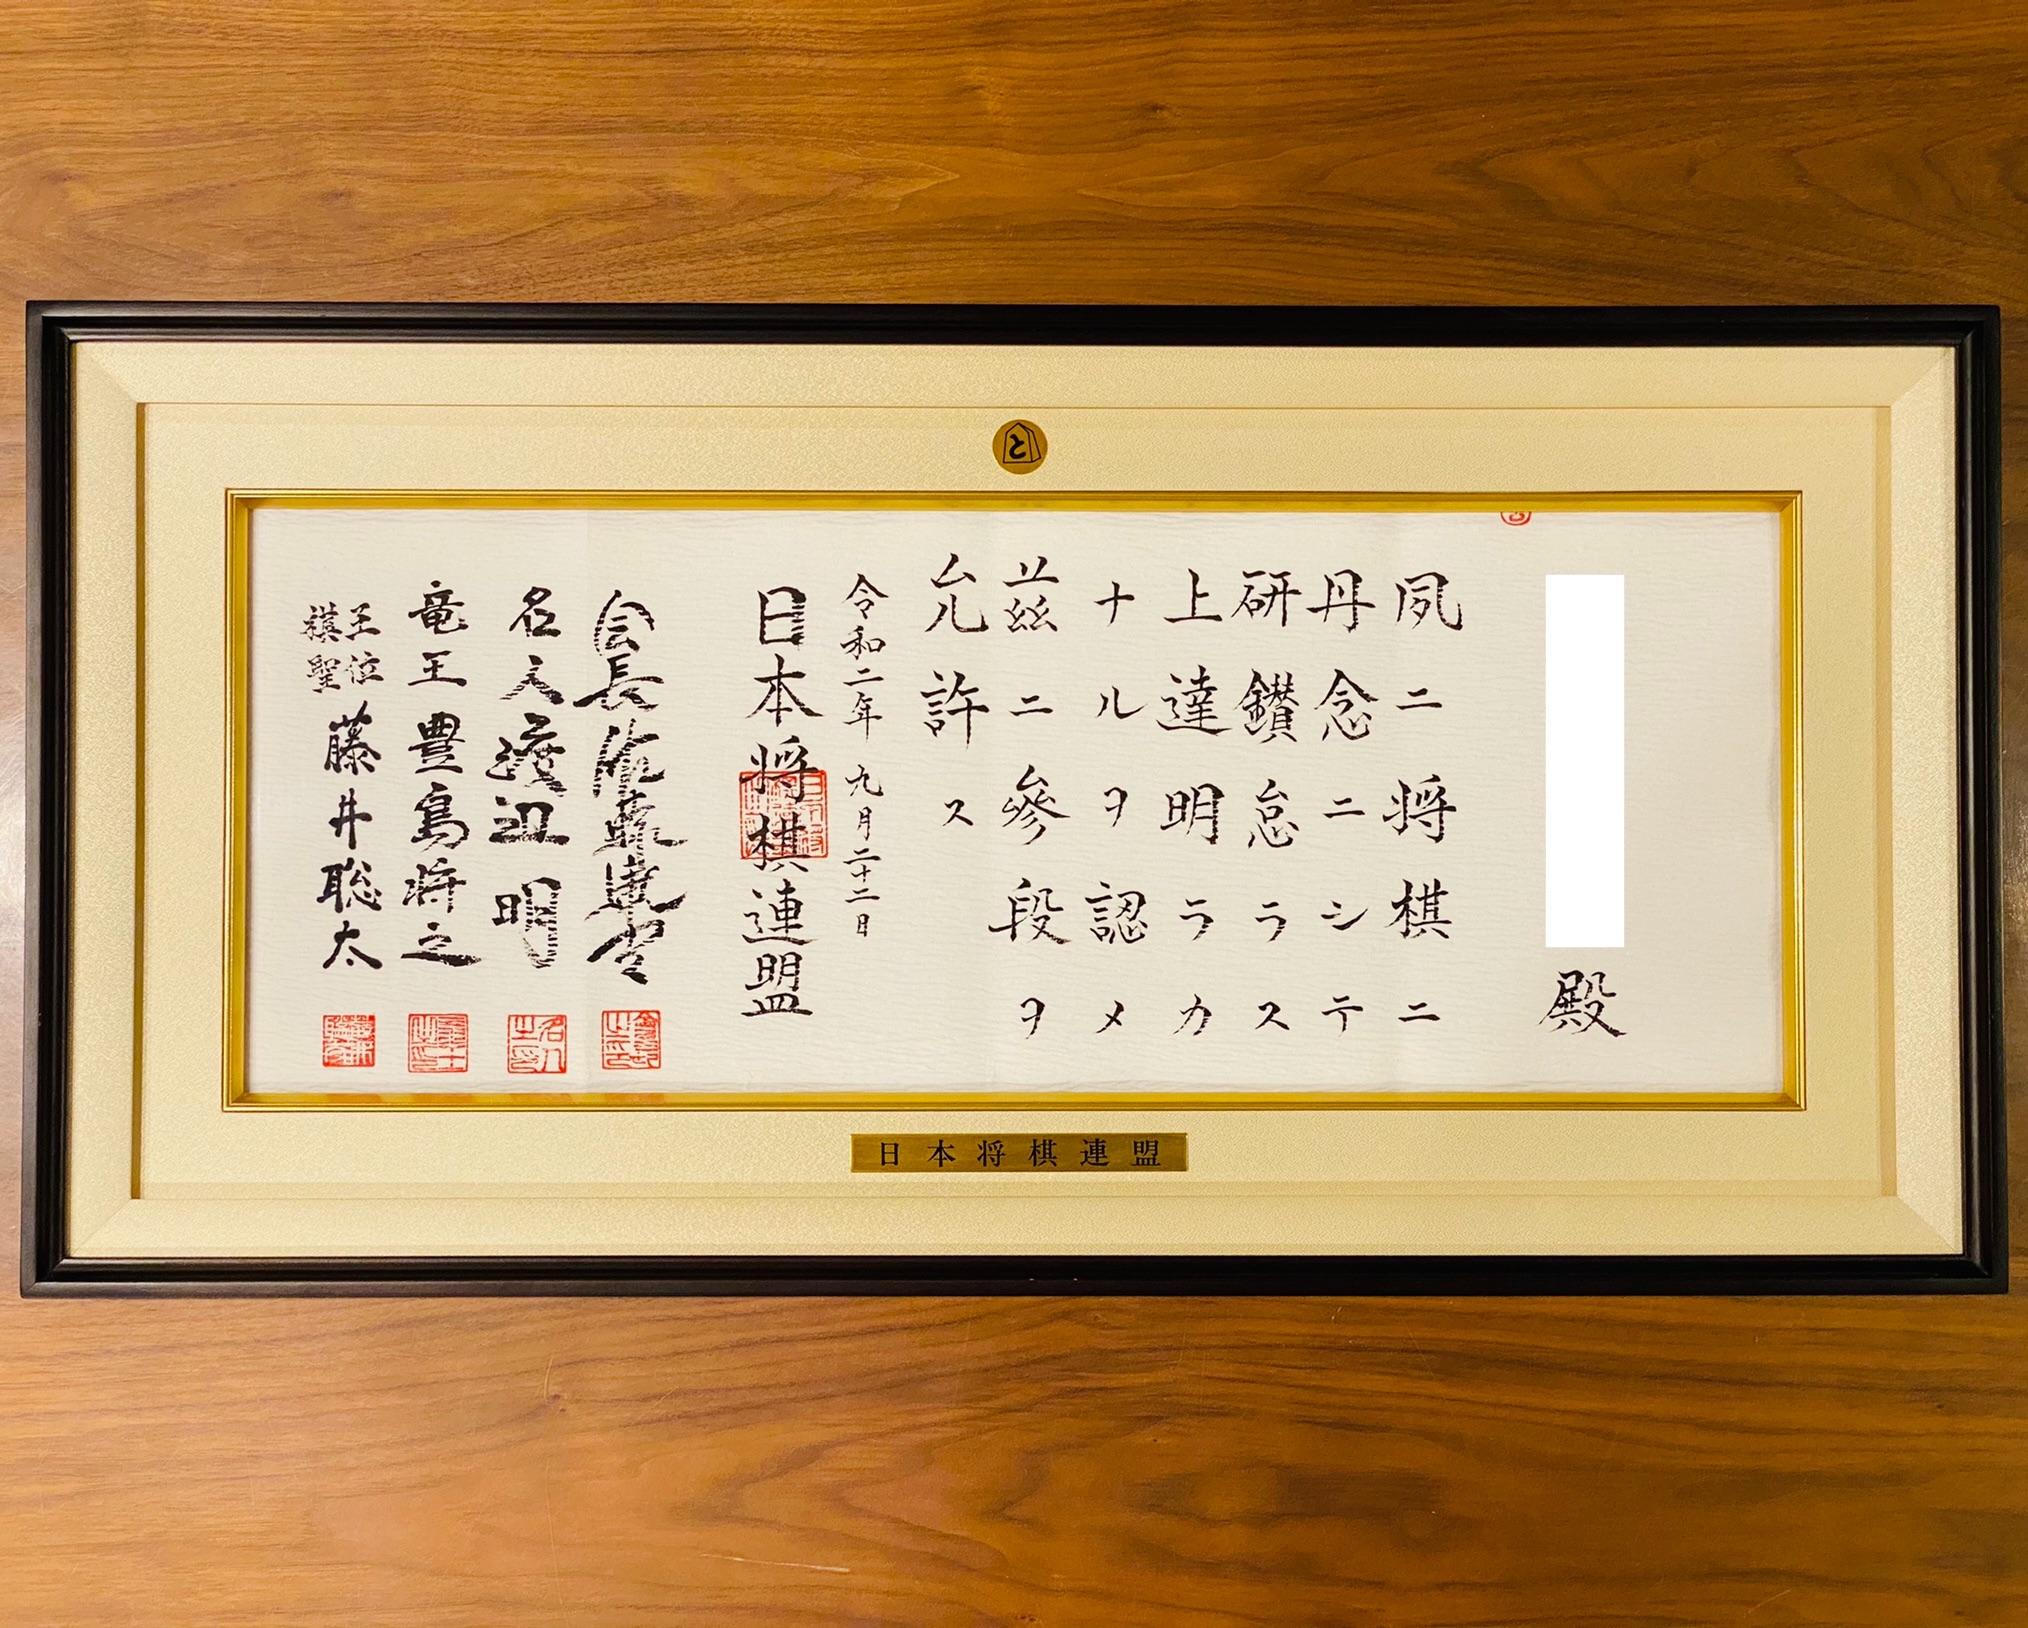 と
殿
夙ニ将棋ニ
丹念ニシテ
研鑚怠ラス
上達明ラカ
ナルヲ認メ
玆ニ參段ヲ
允許ス
令和二年九月二十二日
日本将棋連盟
会長佐藤康光
名人渡辺明
竜王豊島将之
王位
棋聖
藤井聡太
日本将棋連盟